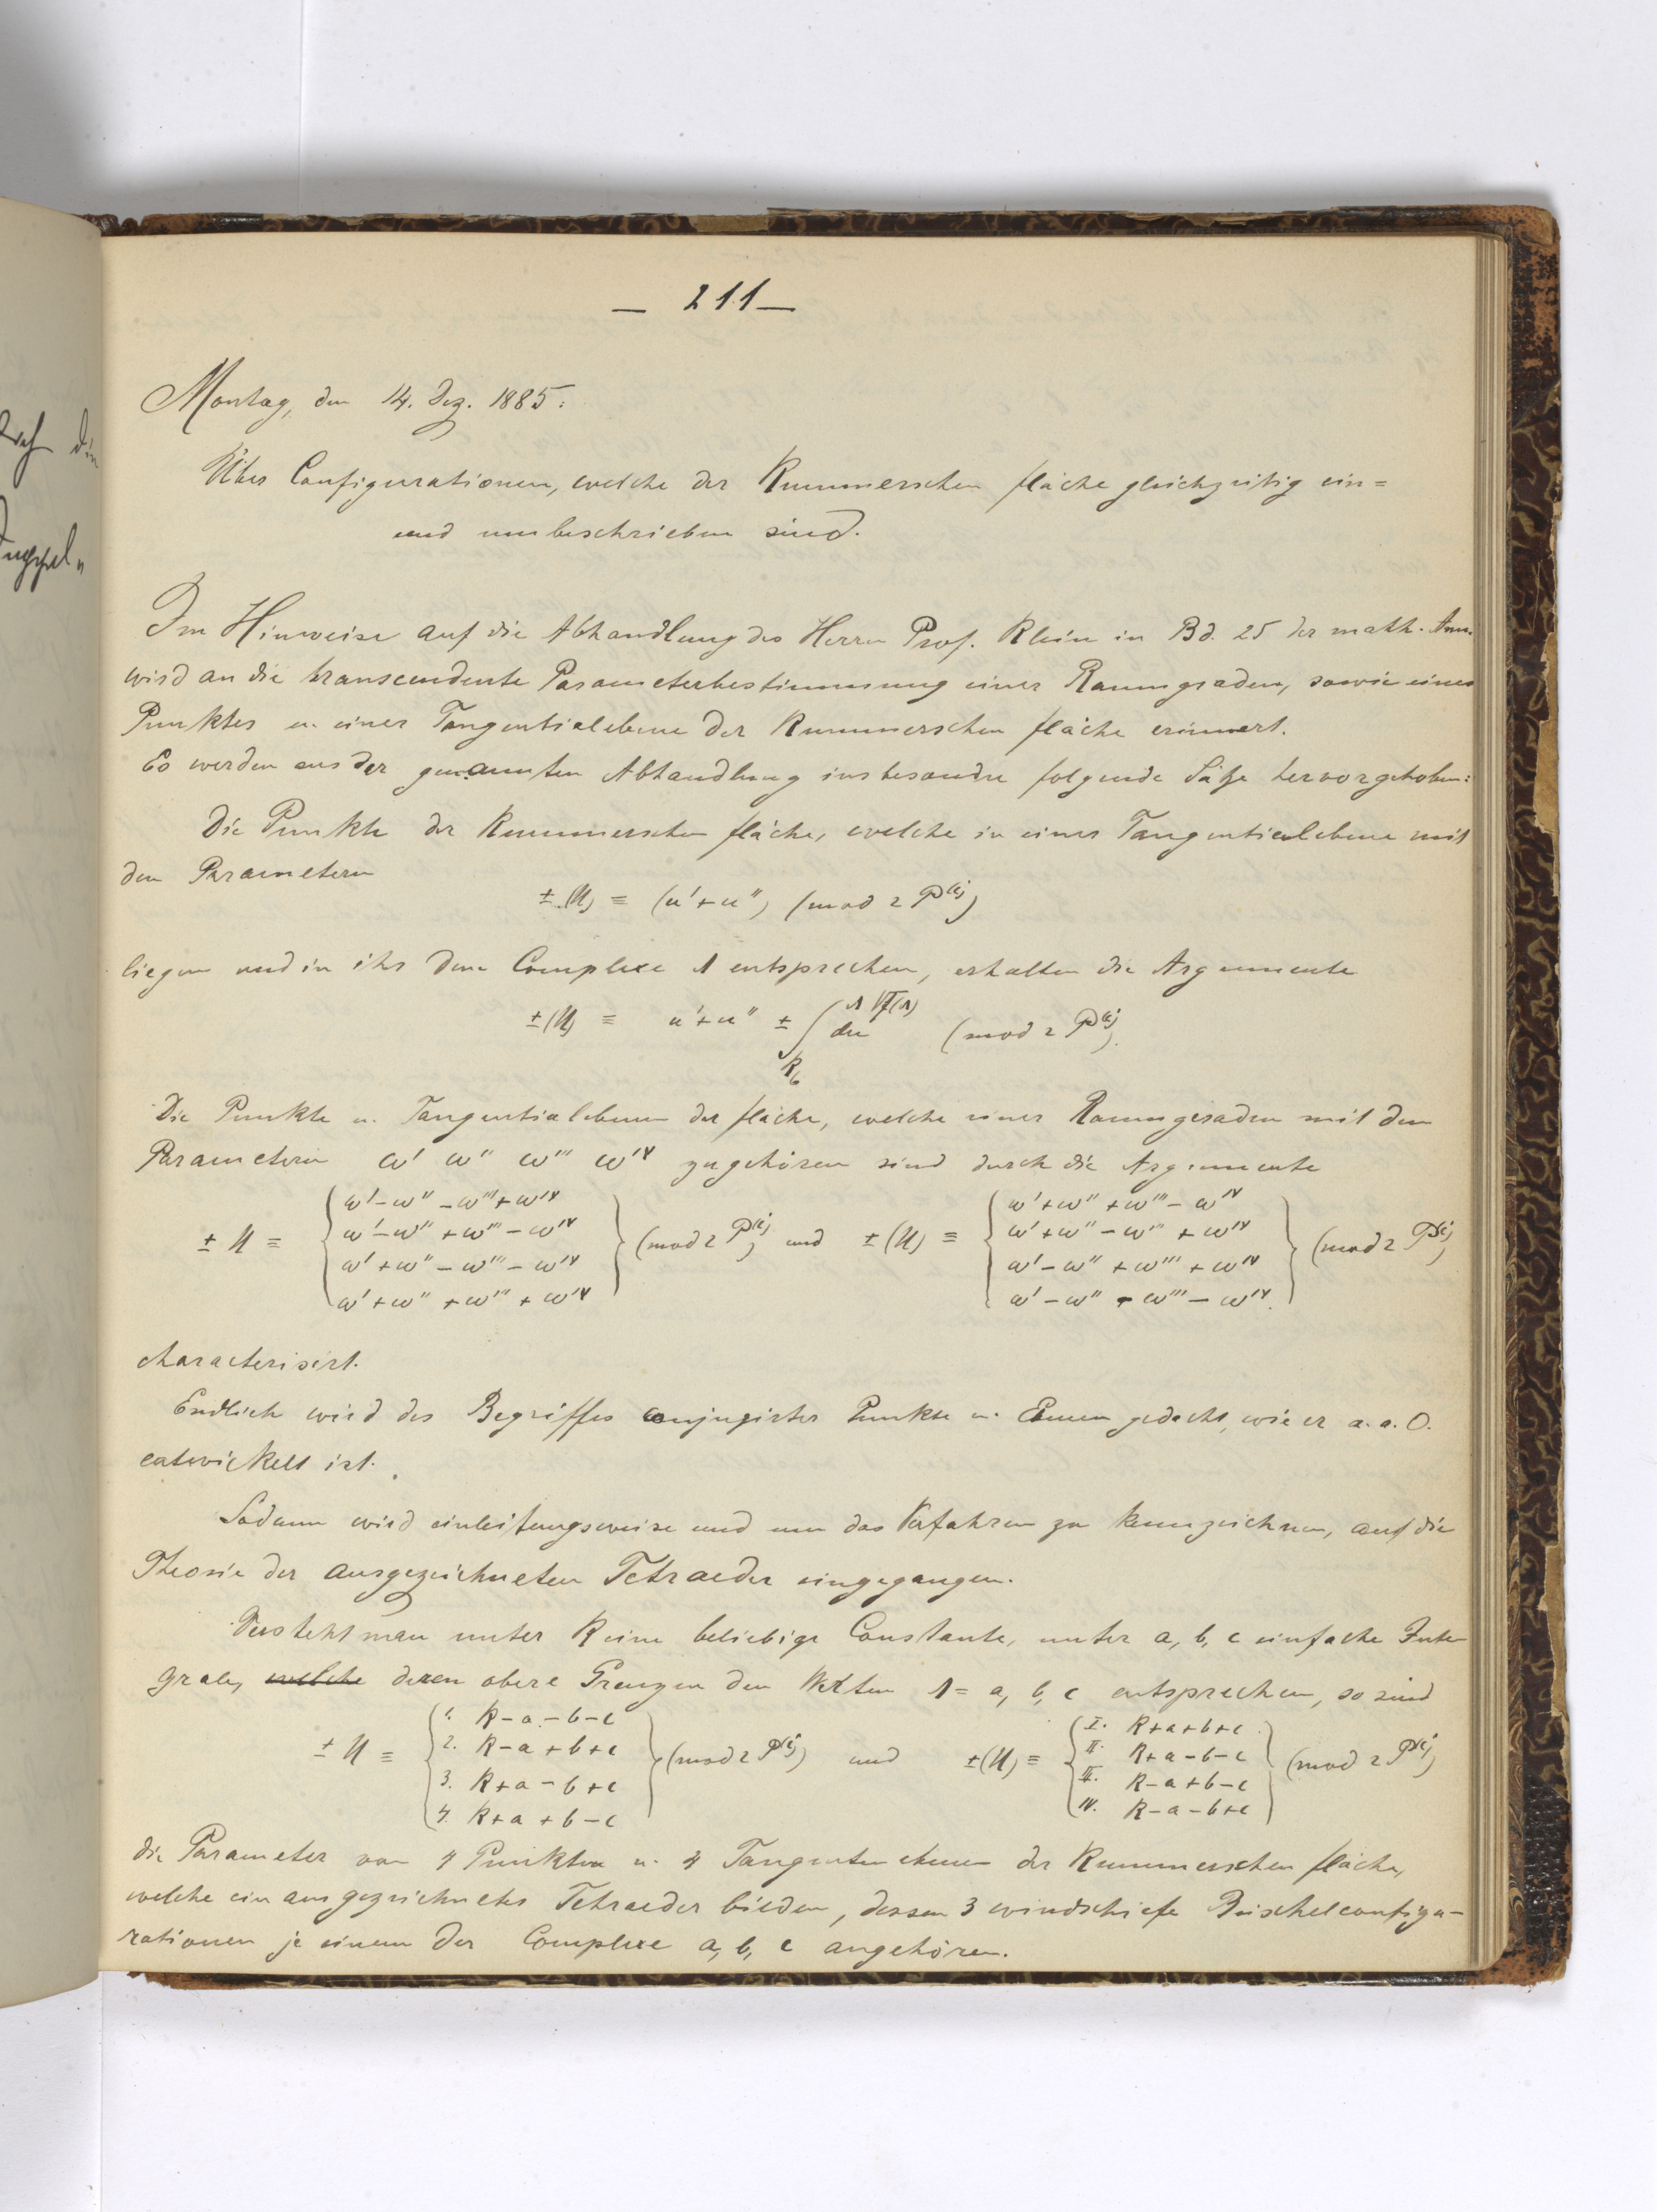 — 211 —
Montag, den 14. Dez. 1885.
Über Configurationen, welche der Kummerschen Fläche gleichzeitig ein=
und umbeschrieben sind.
Im Hinweise auf die Abhandlung des Herrn Prof. Klein in Bd. 25 der math. Ann.
wird an die transcendente Parameterbestimmung einer Raumgraden, sowie eines
Punktes u. einer Tangentialebene der Kummerschen Fläche erinnert.
Es werden aus der genannten Abhandlung insbesondre folgende Sätze hervorgehoben:
Die Punkte der Kummerschen Fläche, welche in einer Tangentialebene mit
den Parametern
± (U) ≡ (u' + u'') (mod 2 P^(i))
liegen und in ihr dem Complexe Λ entsprechen, erhalten die Argumente
± (U) ≡ u' + u'' ± ∫_{K_6}^{Λ √f(Λ)} du (mod 2 P^(i)).
Die Punkte u. Tangentialebenen der Fläche, welche einer Raumgeraden mit den
Parametern ω' ω'' ω''' ω^IV zugehören sind durch die Argumente
± U ≡ { ω' − ω'' − ω''' + ω^IV
ω' − ω'' + ω''' − ω^IV
ω' + ω'' − ω''' − ω^IV
ω' + ω'' + ω''' + ω^IV } (mod 2 P^(i)) und ± (U) ≡ { ω' + ω'' + ω''' − ω^IV
ω' + ω'' − ω''' + ω^IV
ω' − ω'' + ω''' + ω^IV
ω' − ω'' − ω''' − ω^IV } (mod 2 P^(i))
characterisirt.
Endlich wird des Begriffes conjugirter Punkte u. Ebenen gedacht, wie er a. a. O.
entwickelt ist.
Sodann wird einleitungsweise und um das Verfahren zu kennzeichnen, auf die
Theorie der ausgezeichneten Tetraeder eingegangen.
Versteht man unter K eine beliebige Constante, unter a, b, c einfache Inte
grale, welche deren obere Grenzen den Werten Λ = a, b, c entsprechen, so sind
± U ≡ { 1. K − a − b − c
2. K − a + b + c
3. K + a − b + c
4. K + a + b − c } (mod 2 P^(i)) und ± (U) ≡ { I. K + a + b + c
II. K + a − b − c
III. K − a + b − c
IV. K − a − b + c } (mod 2 P^(i))
die Parameter von 4 Punkten u. 4 Tangentenebenen der Kummerschen Fläche,
welche ein ausgezeichnetes Tetraeder bilden, dessen 3 windschiefe Büschelconfigu-
rationen je einem der Complexe a, b, c angehören.